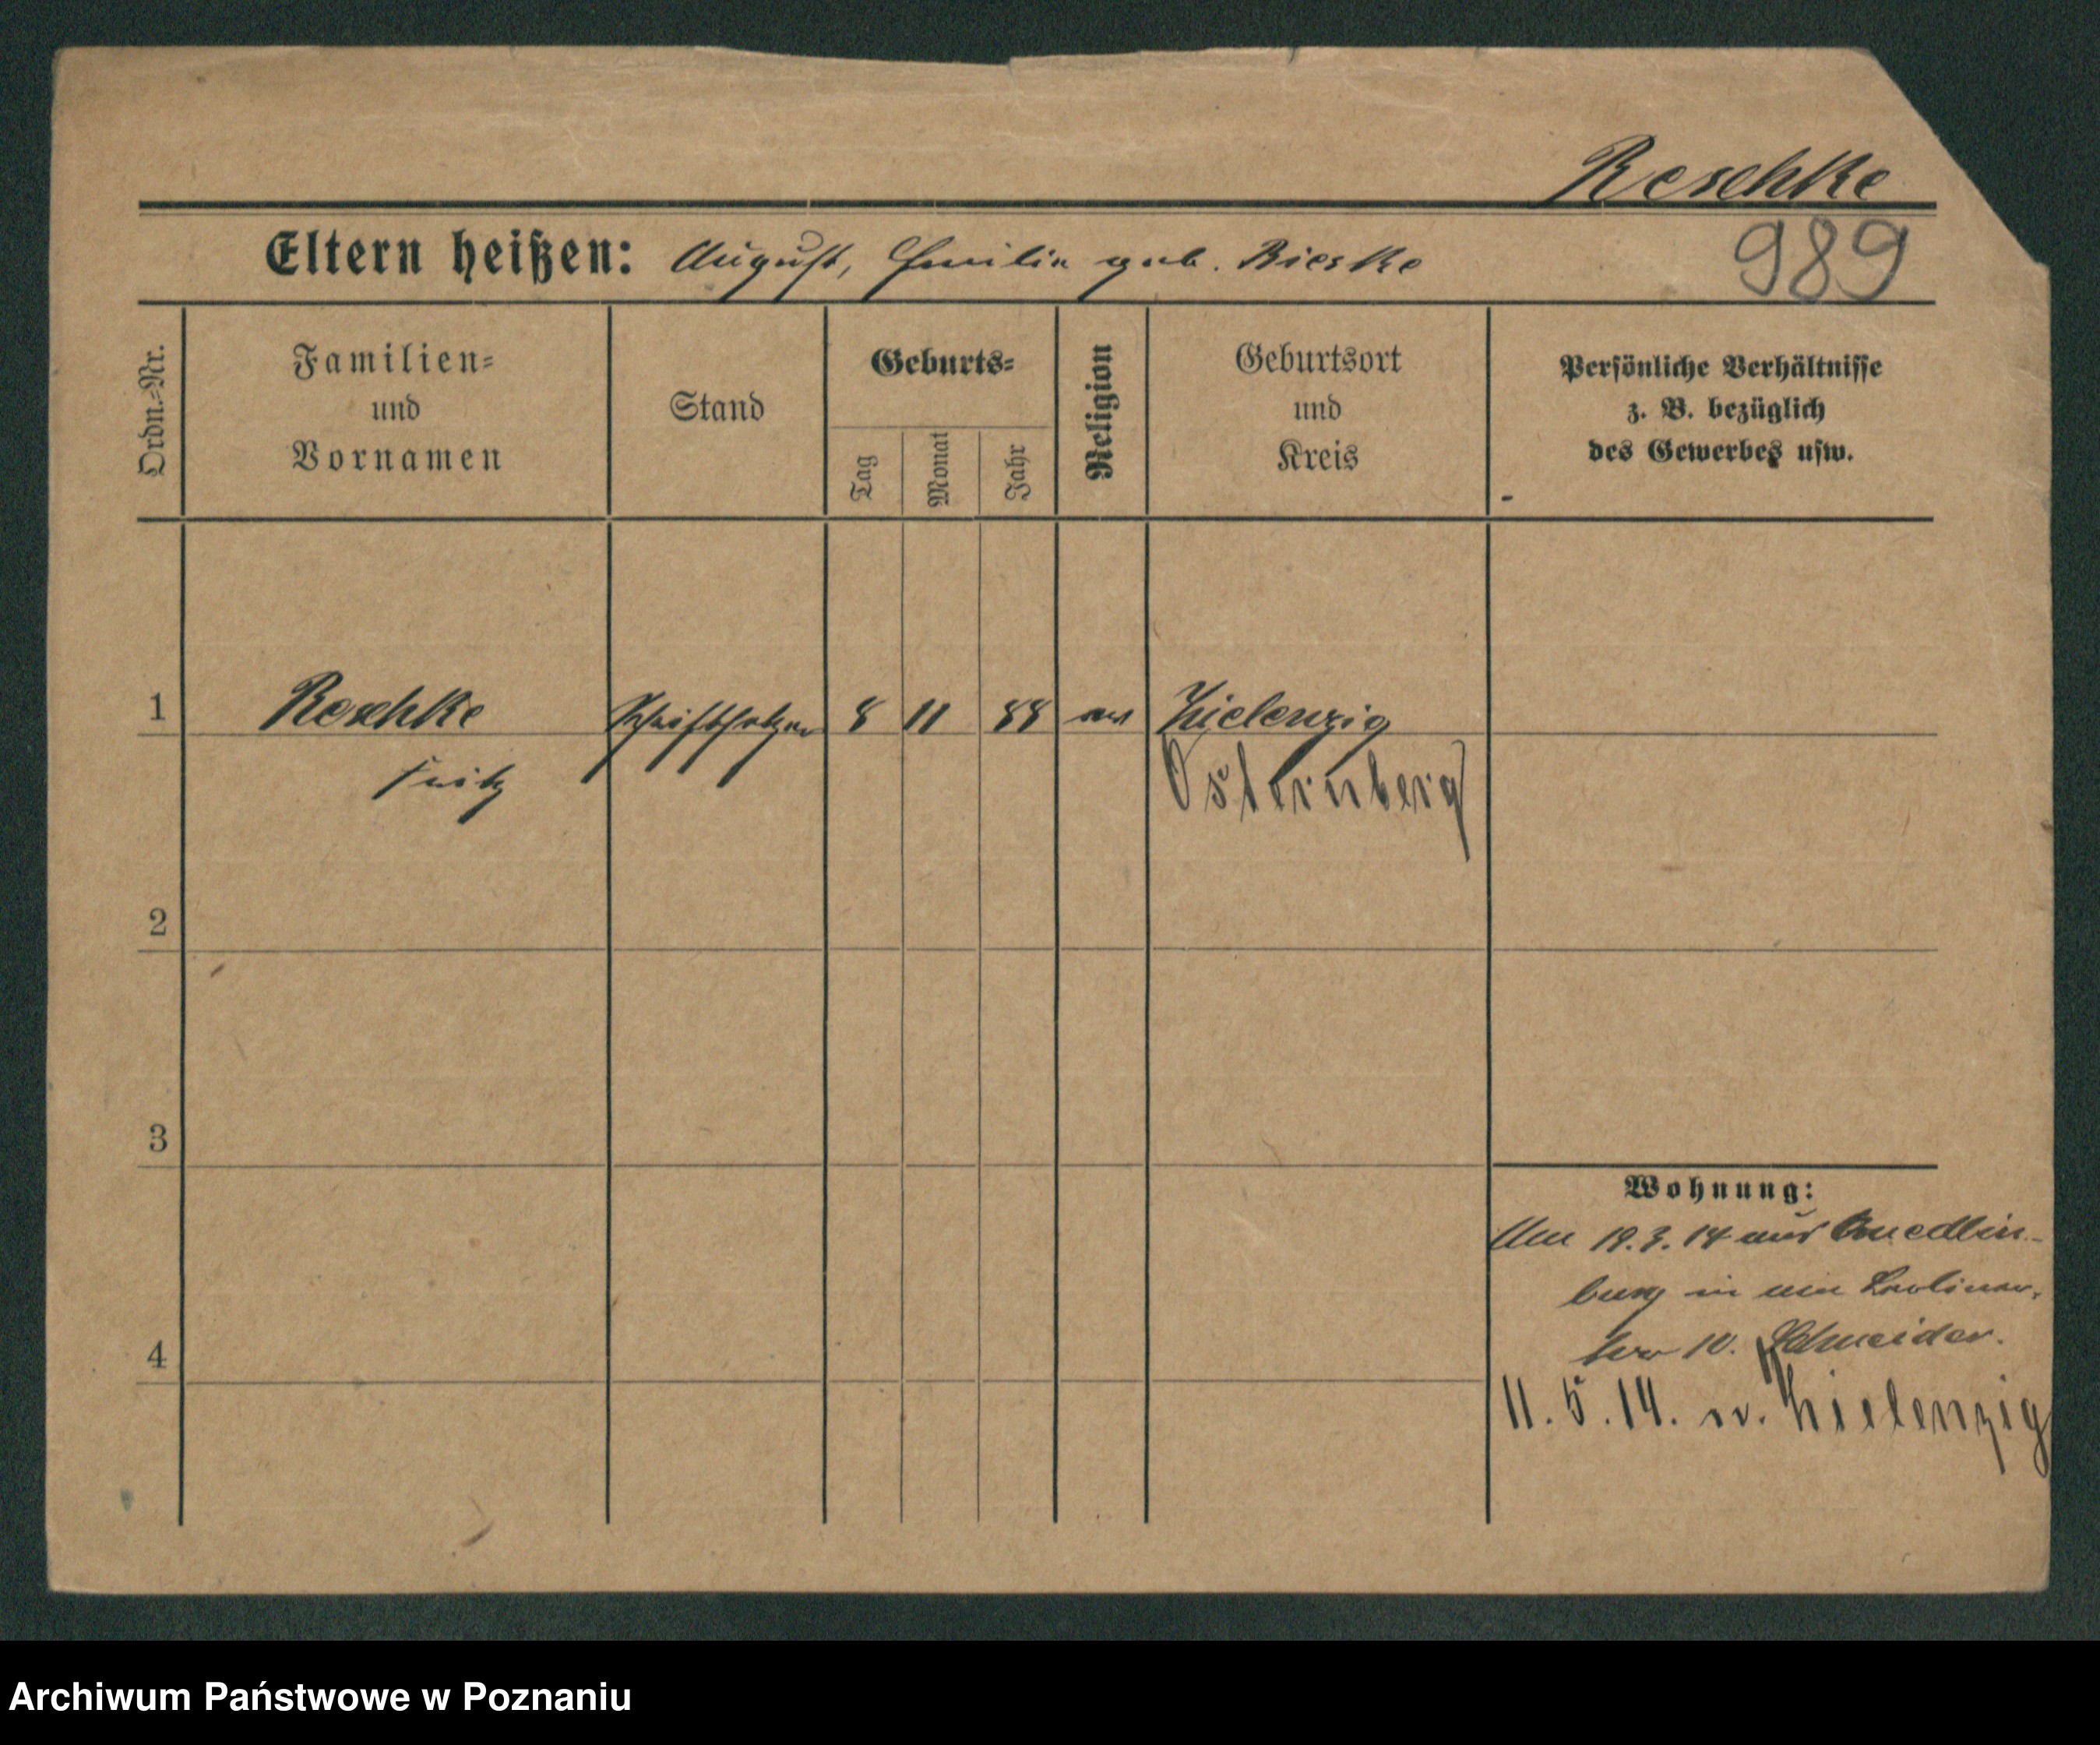 Reschke
Eltern heißen: August, Emilie geb. Rieske
989
Ordn.-Nr.
Familien-
und
Vornamen
Stand
Geburts-
Tag
Monat
Jahr
Religion
Geburtsort
und
Kreis
Persönliche Verhältnisse
z. B. bezüglich
des Gewerbes usw.
1 Reschke Schriftsetzer 8 11 88 ev Zielenzig
Fritz Osternberg
2
3
4
Wohnung:
Am 19.3.14 aus Quedlin-
burg in
10. Schneider.
11.5.14. n. Zielenzig
Archiwum Państwowe w Poznaniu